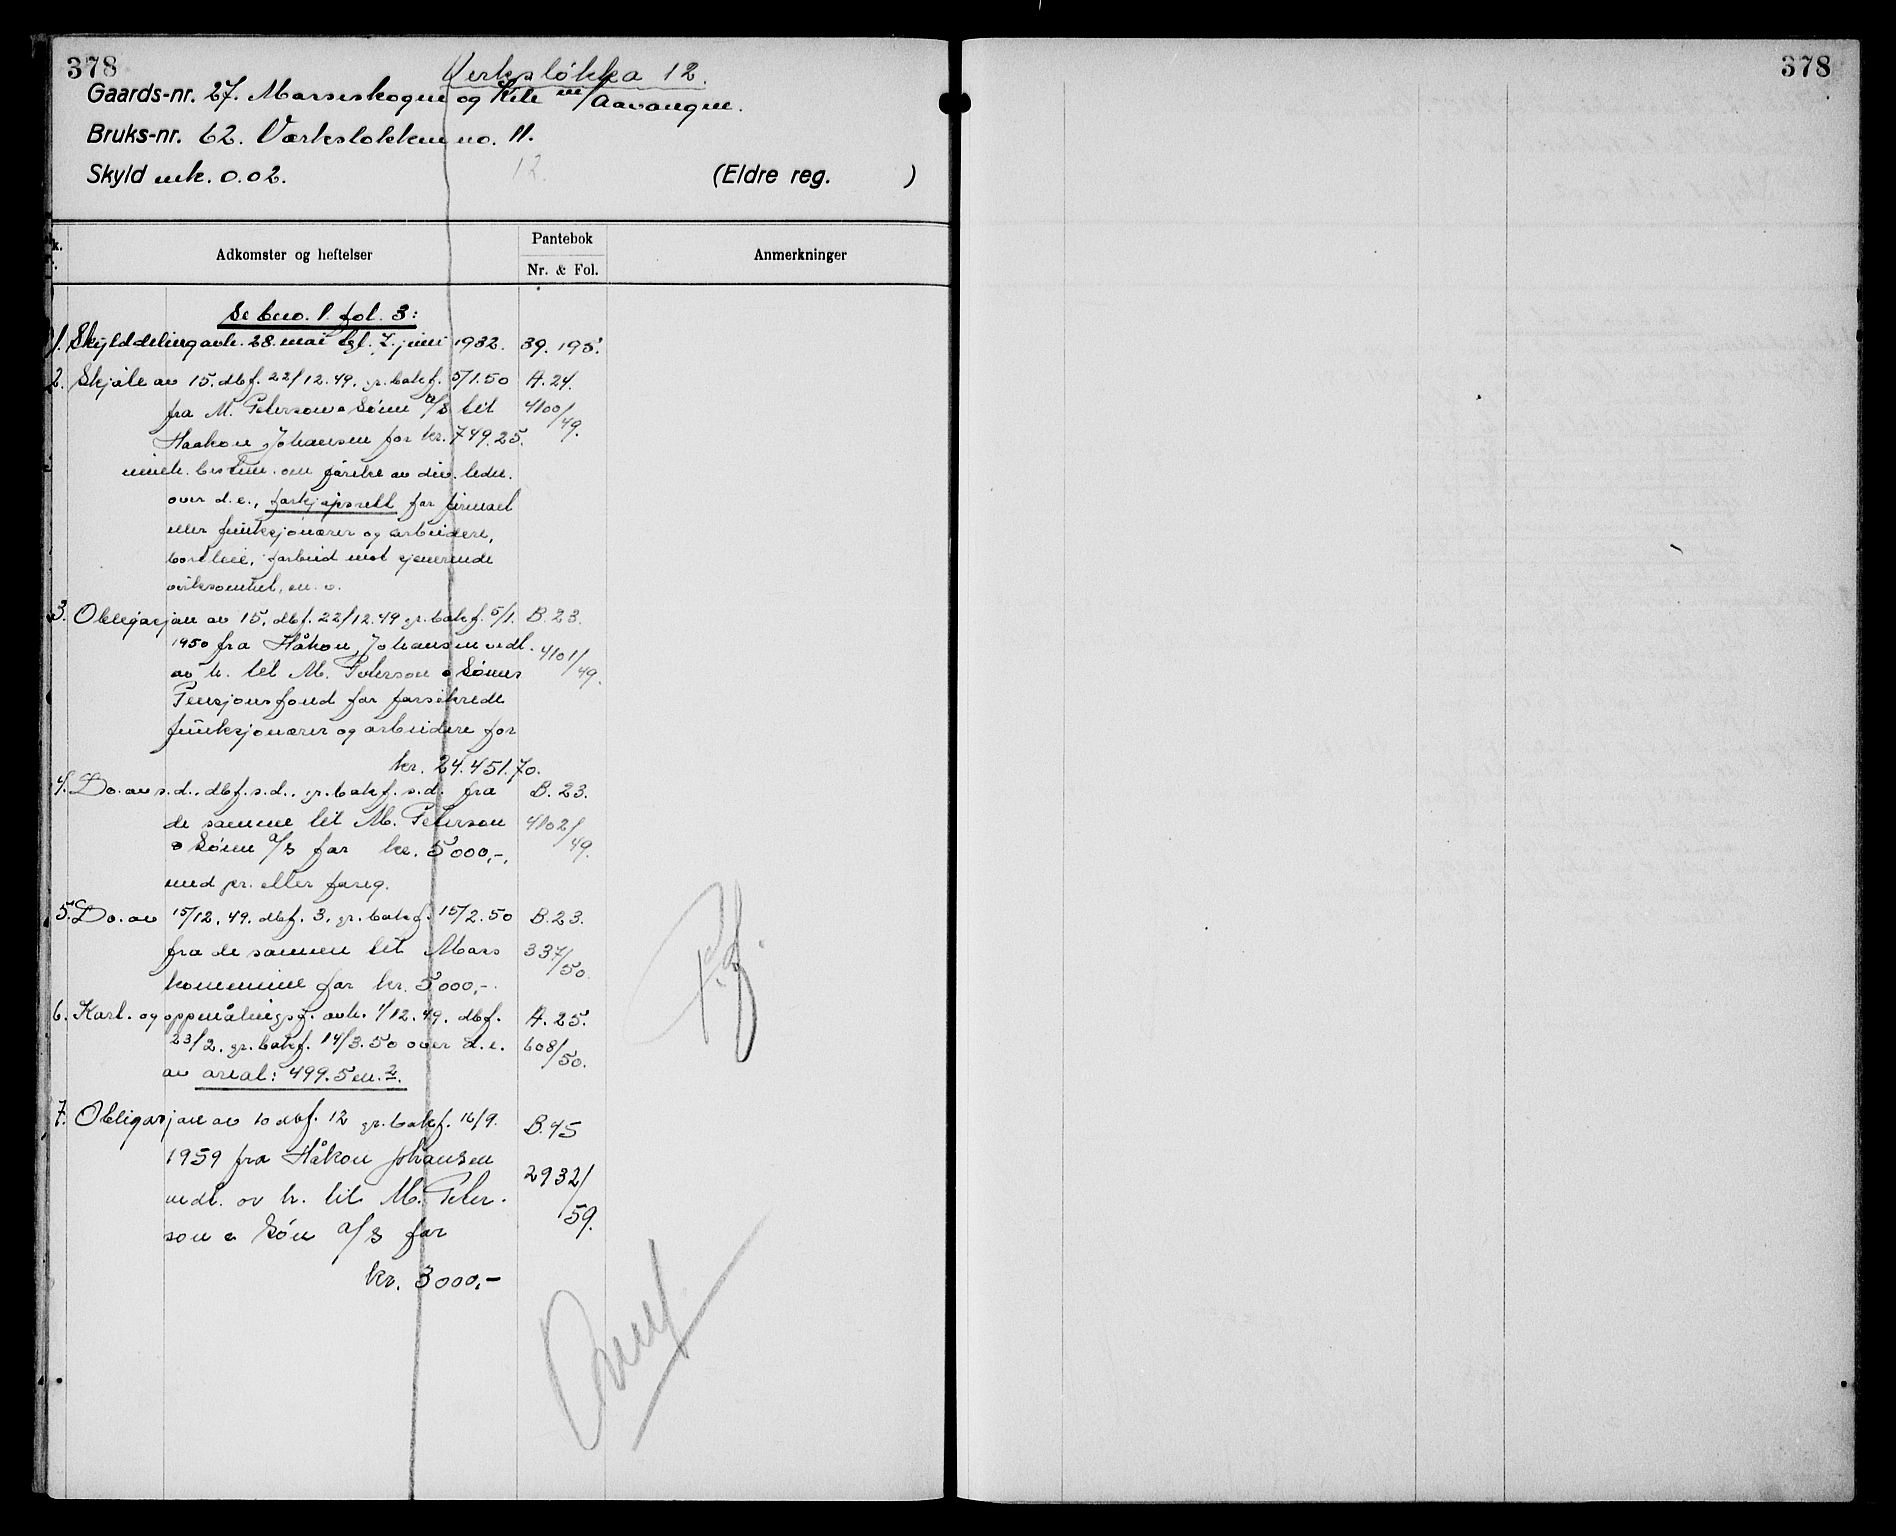 378
Verksløkka 12.
Gaards-nr. 27. Mosseskogen og Kile m/Aavangen.
Bruks-nr. 62. Værksløkken no. 11.
12.
Skyld mk. 0.02. (Eldre reg. )
Adkomster og heftelser
Pantebok
Nr. & Fol.
Anmerkninger
Se bno. 1. fol. 3:
1. Skylddeling avh. 28. mai tgl. 7. juni 1932. 39. 195.
2. Skjøte av 15. dbf. 22/12.49, gr.bokf. 5/1.50 A. 24.
fra M. Peterson & Sønn A/S til 4100/49.
Haakon Johansen for kr. 749.25.
inneh. bestem. om førelse av div. ledn.
over d.e., forkjøpsrett for firmaet
eller funksjonærer og arbeidere,
bortleie, forbud mot sjenerende
virksomhet, m.v.
3. Obligasjon av 15. dbf. 22/12.49 gr.bokf. 5/1. B. 23.
1950 fra Håkon Johansen vedt. 4101/49.
av h. til M. Peterson & Sønns
Pensjonsfond for forsikrede
funksjonærer og arbeidere for
kr. 24.451.70.
4. Do. av s.d., dbf. s.d., gr.bokf. s.d. fra B. 23.
de samme til M. Peterson 4102/49.
& Sønn A/S for kr. 5000,-,
med pr. etter foreg.
5. Do. av 15/12.49. dbf. 3, gr.bokf. 15/2.50 B. 23.
fra de samme til Moss 337/50.
kommune for kr. 5000,-.
6. Kart- og oppmålingsf. avh. 1/12.49. dbf. A. 25.
23/2. gr.bokf. 14/3.50 over d.e. 608/50.
av areal: 499.5 m.2.
7. Obligasjon av 10 dbf. 12 gr.bokf. 16/9. B. 45
1959 fra Håkon Johansen 2932/59.
vedt. av h. til M. Peter-
son & Søn A/S for
kr. 3000,-
378